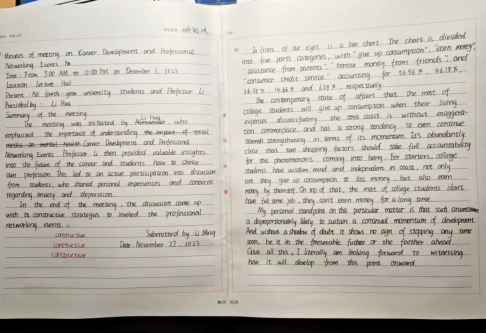 Minutes of meeting on Career Development and Professional
Networking Events
Time: From 9:00 AM to 12:00 PM on December 1, 2023
Location: Lecture Hall
Present: All fourth-year university students and Professor Li.
Presided by: Li Hua
Summary of the meeting
Li Hua
The meeting was initiated by who
emphasized the importance of understanding the impact of social
media on mental health Career Development and Professional
Networking Events. Professor Li then provided valuable insights
into the future of the career and students how to choose
own profession. This led to an active participation into discussion
from students, who shared personal experiences and concerns
regarding anxiety and depression.
In the end of the meeting, the discussion came up
with constructive strategies to the professional
networking events.
constructive
constructive
constructive
Submitted by: Li Ming
Date: November 27, 2023
In front of our eyes is a bar chart. The chart is divided
into five parts categories, with "give up consumption", "earn money",
"assistance from parents", "borrow money from friends", and
"consumer credit service" accounting for
respectively.
The contemporary state of affairs that the most of
college students will give up consumption when their living
expenses dissatisfactory is without exaggeration
commonplace and has a strong tendency to even continue
strengthening in terms of its momentum. It's abundantly
clear that two factors should take full accountability
for this phenomenon's coming into being. For starters, college
students have wisdom mind and independent in coast, not only
are they give up consumption to less money, but also earn
money by themself. On top of that, the most of college students don't
have full time job, they can't earn money for a long time.
My personal standpoint on this particular matter is that such circumstance
is disproportionately likely to sustain a continual momentum of development.
And without a shadow of doubt it shows no sign of stopping any time
soon, be it in the foreseeable future or the farther ahead.
Give all this, I literally am looking forward to witnessing
how it will develop from this point onward.